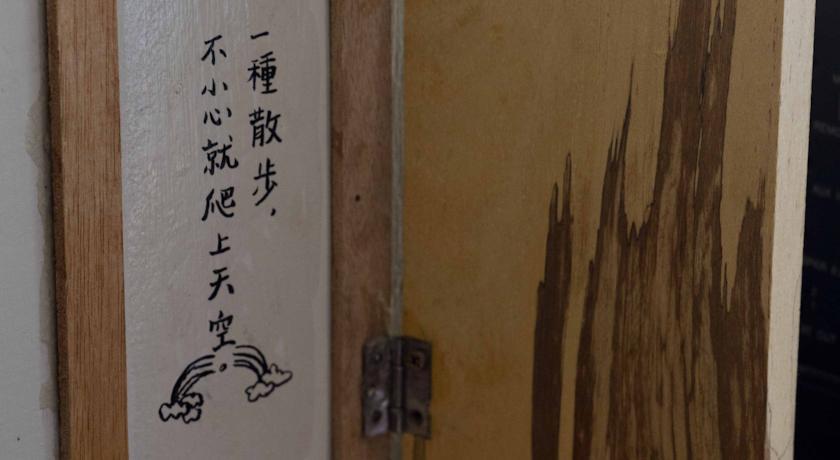 一種散步，
不小心就爬上天空。